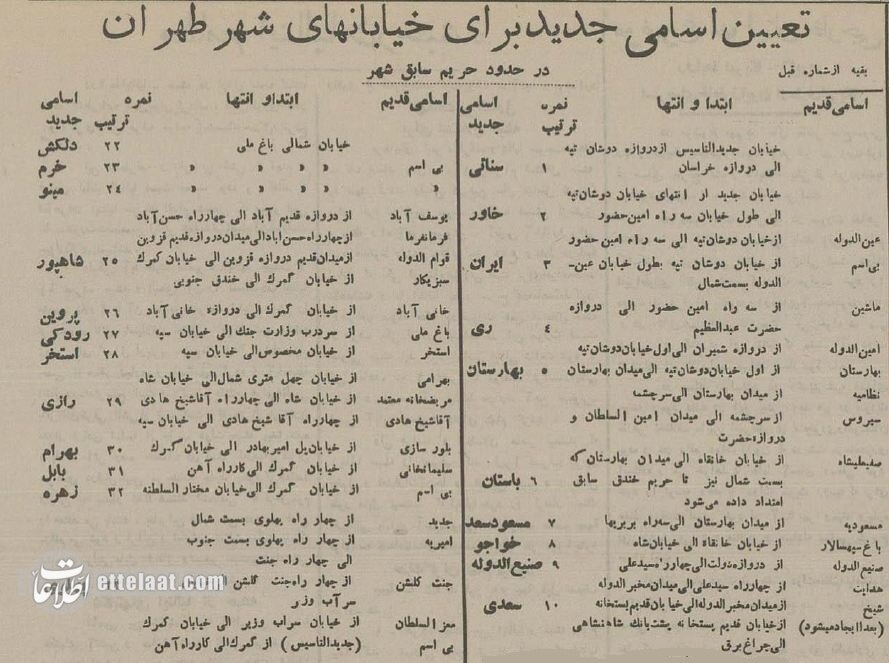 تعیین اسامی جدید برای خیابانهای شهر طهران
بقیه از شماره قبل
در حدود حریم سابق شهر
اسامی قدیم ابتدا و انتها نمره ترتیب اسامی جدید
خیابان جدیدالتاسیس از دروازه دوشان تپه
الی دروازه خراسان ۱ سنائی
خیابان جدید از انتهای خیابان دوشان‌تپه
الی طول خیابان سه راه امین‌حضور ۲ خاور
عین‌الدوله از خیابان دوشان‌تپه الی سه راه امین حضور
بی‌اسم از خیابان دوشان تپه بطول خیابان عین- ۳ ایران
الدوله بسمت‌شمال
ماشین از سه راه امین حضور الی دروازه
حضرت عبدالعظیم ۴ ری
امین‌الدوله از دروازه شمیران الی‌اول خیابان‌دوشان‌تپه
بهارستان از اول خیابان‌دوشان‌تپه الی‌میدان بهارستان ۵ بهارستان
نظامیه از میدان بهارستان الی سرچشمه
سیروس از سرچشمه الی میدان امین السلطان و
دروازه‌حضرت
صفیعلیشاه از خیابان خانقاه الی میدان بهارستان که
بسمت شمال نیز تا حریم خندق سابق ۶ باستان
امتداد داده می‌شود
مسعودیه از میدان بهارستان الی‌سه‌راه بربریها ۷ مسعودسعد
باغ‌سپهسالار از خیابان خانقاه الی‌خیابان‌شاه ۸ خواجو
صنیع‌الدوله از دروازه‌دولت‌الی‌چهارراه‌سیدعلی ۹ صنیع‌الدوله
هدایت از چهارراه سیدعلی‌الی‌میدان‌مخبرالدوله
شیخ از میدان مخبرالدوله‌الی‌خیابان قدیم پستخانه ۱۰ سعدی
(بعدا ایجاد میشود) از خیابان قدیم پستخانه پشت‌بانك شاهنشاهی
الی‌چراغ برق
اسامی قدیم ابتدا و انتها نمره ترتیب اسامی جدید
خیابان شمالی باغ ملی ۲۲ دلکش
بی اسم » » » » ۲۳ خرم
» » » » » ۲۴ مینو
یوسف آباد از دروازه قدیم آباد الی چهارراه حسن‌آباد
فرمانفرما از چهارراه‌حسن‌ابادالی‌میدان‌دروازه‌قدیم قزوین
قوام الدوله از میدان‌قدیم دروازه قزوین الی خیابان گمرك ۲۵ شاهپور
سبزیکار از خیابان گمرك الی خندق جنوبی
خانی آباد از خیابان گمرك الی دروازه خانی‌آباد ۲۶ پروین
باغ ملی از سردرب وزارت جنك الی خیابان سپه ۲۷ رودکی
استخر از خیابان مخصوص‌الی خیابان سپه ۲۸ استخر
بهرامی از خیابان چهل متری شمال‌الی خیابان شاه
مریضخانه معتمد از خیابان شاه الی چهارراه آقاشیخ هادی ۲۹ رازی
آقاشیخ‌هادی از چهارراه آقا شیخ هادی الی خیابان سپه
بلور سازی از خیابان‌پل امیربهادر الی خیابان گمرك ۳۰ بهرام
سلیمانخانی از خیابان گمرك الی‌کارراه آهن ۳۱ بابل
بی اسم از خیابان گمرك الی‌خیابان مختارالسلطنه ۳۲ زهره
جدید از چهار راه پهلوی بسمت شمال
امیریه از چهار راه پهلوی بسمت جنوب
الی چهار راه جنت
جنت گلشن از چهار راه‌جنت گلشن
سرآب وزیر
معزالسلطان از خیابان سرآب وزیر الی خیابان گمرك
بی اسم (جدیدالتاسیس) از گمرك‌الی‌کارراه‌آهن
اطلاعات
ettelaat.com